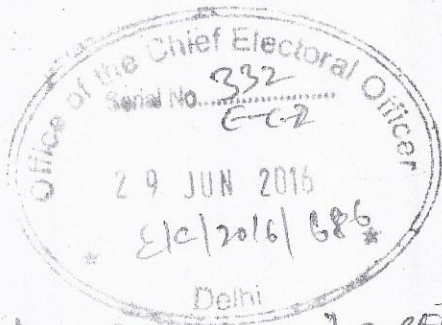 Office of the Chief Electoral Officer
Serial No. 332
E-C-2
29 JUN 2016
E/C/2016/686
Delhi